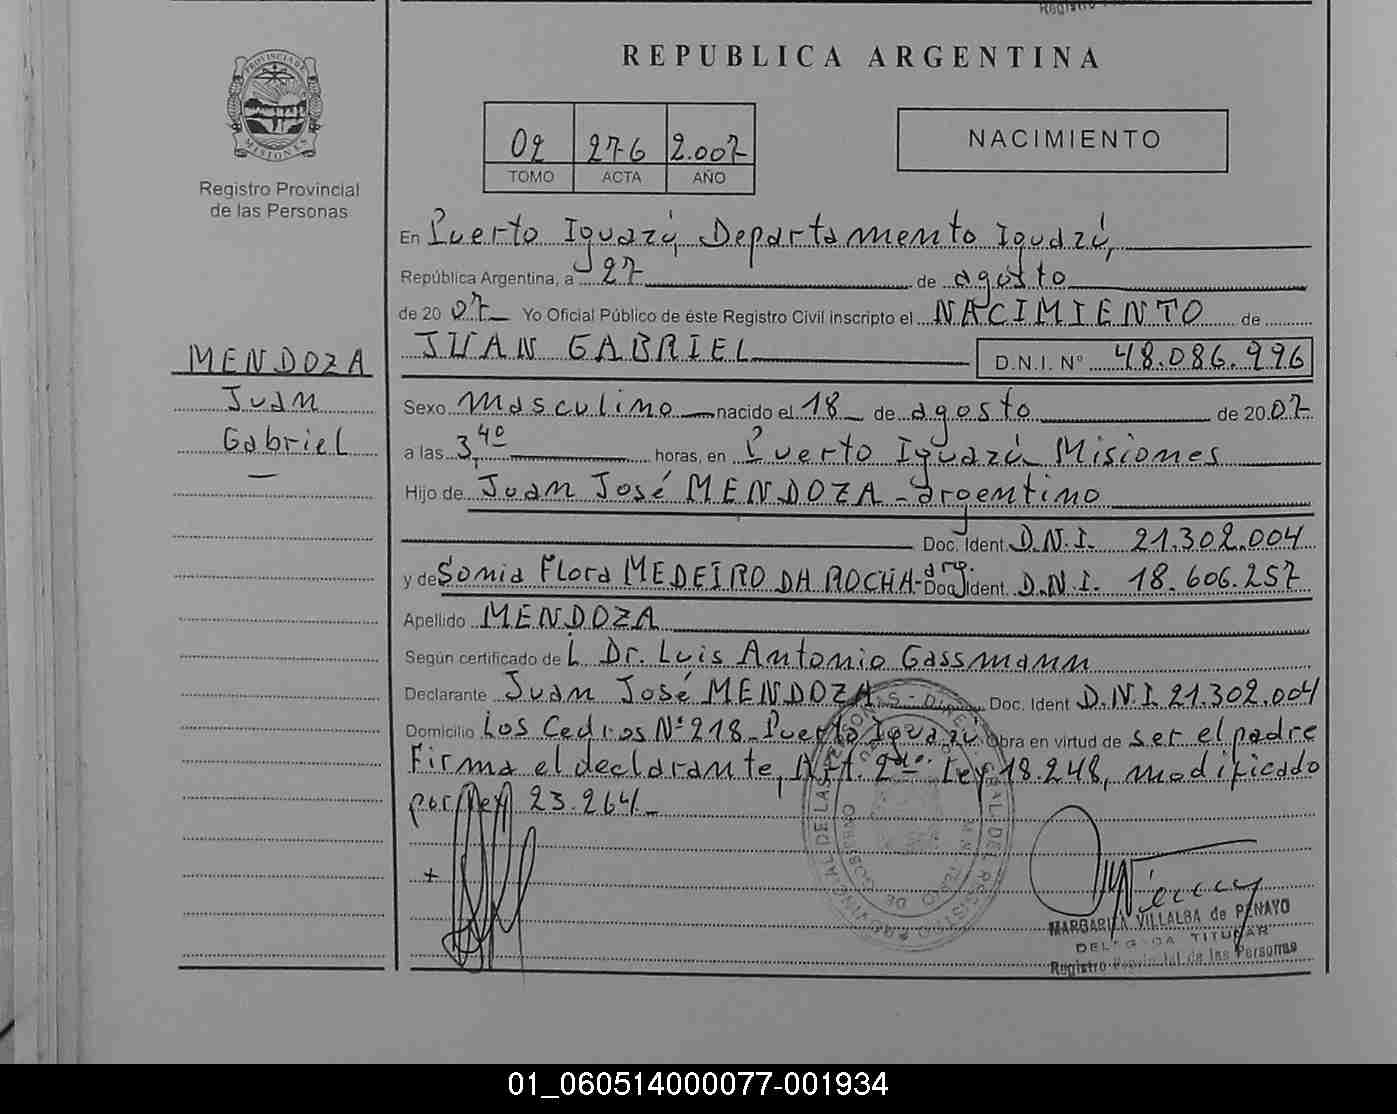 REPUBLICA ARGENTINA
PROVINCIA DE
MISIONES
Registro Provincial
de las Personas
02 276 2.007
TOMO ACTA AÑO
NACIMIENTO
En Puerto Iguazú, Departamento Iguazú,
República Argentina, a 27 de agosto
de 20 07 Yo Oficial Público de éste Registro Civil inscripto el NACIMIENTO de
JUAN GABRIEL D.N.I. Nº 48.086.996
MENDOZA
Juan
Gabriel
Sexo Masculino nacido el 18 de agosto de 20 07
a las 3,40 horas, en Puerto Iguazú Misiones
Hijo de Juan José MENDOZA - argentino
Doc. Ident. D.N.I. 21.302.004
y de Sonia Flora MEDEIRO DA ROCHA - arg. Doc. Ident. D.N.I. 18.606.257
Apellido MENDOZA
Según certificado de L Dr. Luis Antonio Gassmann
Declarante Juan José MENDOZA Doc. Ident D.N.I. 21.302.004
Domicilio Los Cedros Nº 218 - Puerto Iguazú Obra en virtud de ser el padre
Firma el declarante, Art. 2do. Ley 18.248, modificado
por Ley 23.264
MARGARITA VILLALBA de PENAYO
DELEGADA TITULAR
Registro Provincial de las Personas
01_060514000077-001934